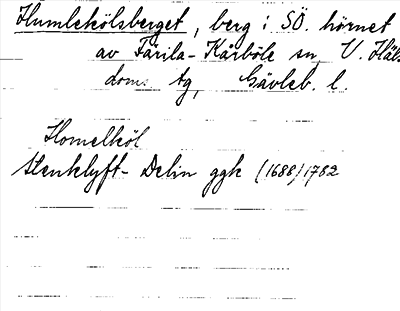 Humlekölsberget, berg i SÖ. hörnet
av Färila-Kårböle sn, V. Häls
doms tg, Gävleb. l.
Homelköl
Stenklyft- Delin ggk (1688)1782